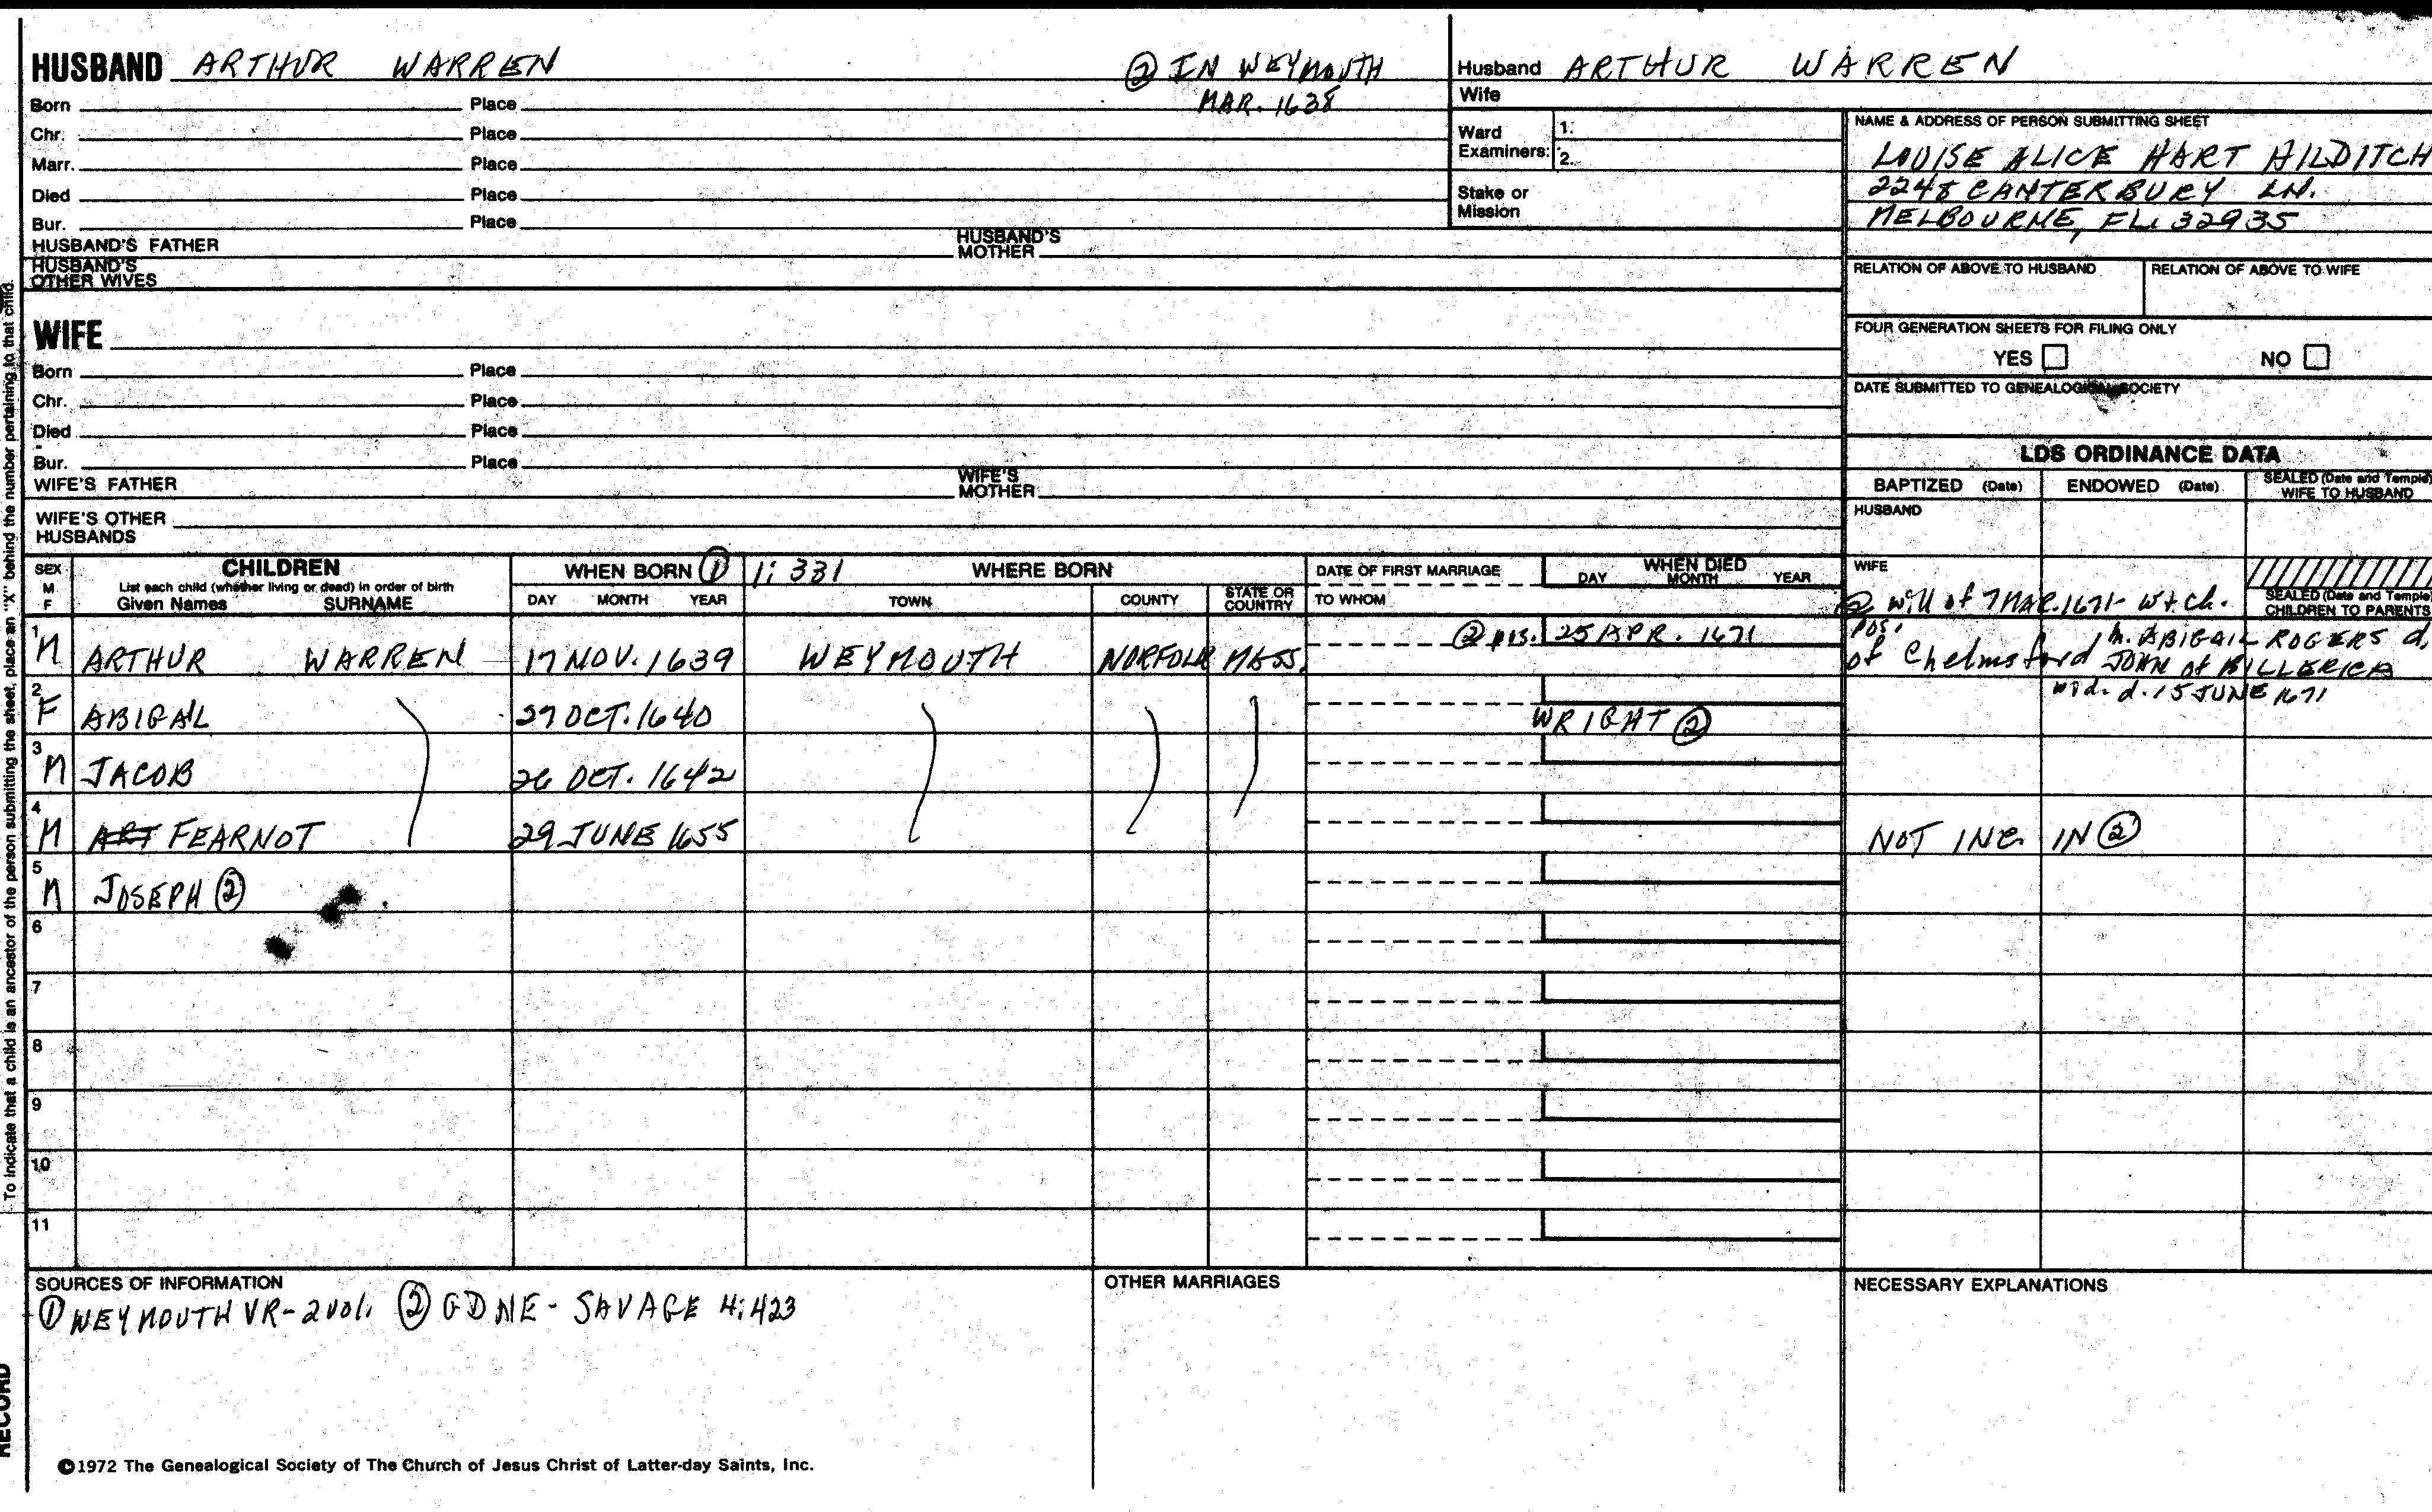 HUSBAND ARTHUR WARREN ② IN WEYMOUTH
MAR. 1638
Born Place
Chr. Place
Marr. Place
Died Place
Bur. Place
HUSBAND'S FATHER HUSBAND'S MOTHER
HUSBAND'S OTHER WIVES
WIFE
Born Place
Chr. Place
Died Place
Bur. Place
WIFE'S FATHER WIFE'S MOTHER
WIFE'S OTHER HUSBANDS
Husband ARTHUR WARREN
Wife
Ward Examiners: 1.
2.
Stake or Mission
NAME & ADDRESS OF PERSON SUBMITTING SHEET
LOUISE ALICE HART HILDITCH
2248 CANTERBURY LN.
MELBOURNE, FL. 32935
RELATION OF ABOVE TO HUSBAND RELATION OF ABOVE TO WIFE
FOUR GENERATION SHEETS FOR FILING ONLY
YES NO
DATE SUBMITTED TO GENEALOGICAL SOCIETY
LDS ORDINANCE DATA
BAPTIZED (Date) ENDOWED (Date) SEALED (Date and Temple) WIFE TO HUSBAND
HUSBAND
WIFE
SEALED (Date and Temple) CHILDREN TO PARENTS
SEX M F
CHILDREN
List each child (whether living or dead) in order of birth
Given Names SURNAME
WHEN BORN ① 1: 331 WHERE BORN
DAY MONTH YEAR TOWN COUNTY STATE OR COUNTRY
DATE OF FIRST MARRIAGE
TO WHOM
WHEN DIED
DAY MONTH YEAR
② will of 7 MAR. 1671- wt ch.
1 M ARTHUR WARREN 17 NOV. 1639 WEYMOUTH NORFOLK MASS. ② pos. 25 APR. 1671
pos. of Chelmsford m. ABIGAIL ROGERS d,
JOHN of BILLERICA
wid. d. 15 JUNE 1671
2 F ABIGAIL 27 OCT. 1640 WRIGHT ②
3 M JACOB 26 OCT. 1642
4 M ART FEARNOT 29 JUNE 1655 NOT INC. IN ②
5 M JOSEPH ②
6
7
8
9
10
11
SOURCES OF INFORMATION
① WEYMOUTH VR- 2 vol. ② GDNE - SAVAGE 4:423
OTHER MARRIAGES
NECESSARY EXPLANATIONS
©1972 The Genealogical Society of The Church of Jesus Christ of Latter-day Saints, Inc.
To indicate that a child is an ancestor of the person submitting the sheet, place an "X" behind the number pertaining to that child.
RECORD